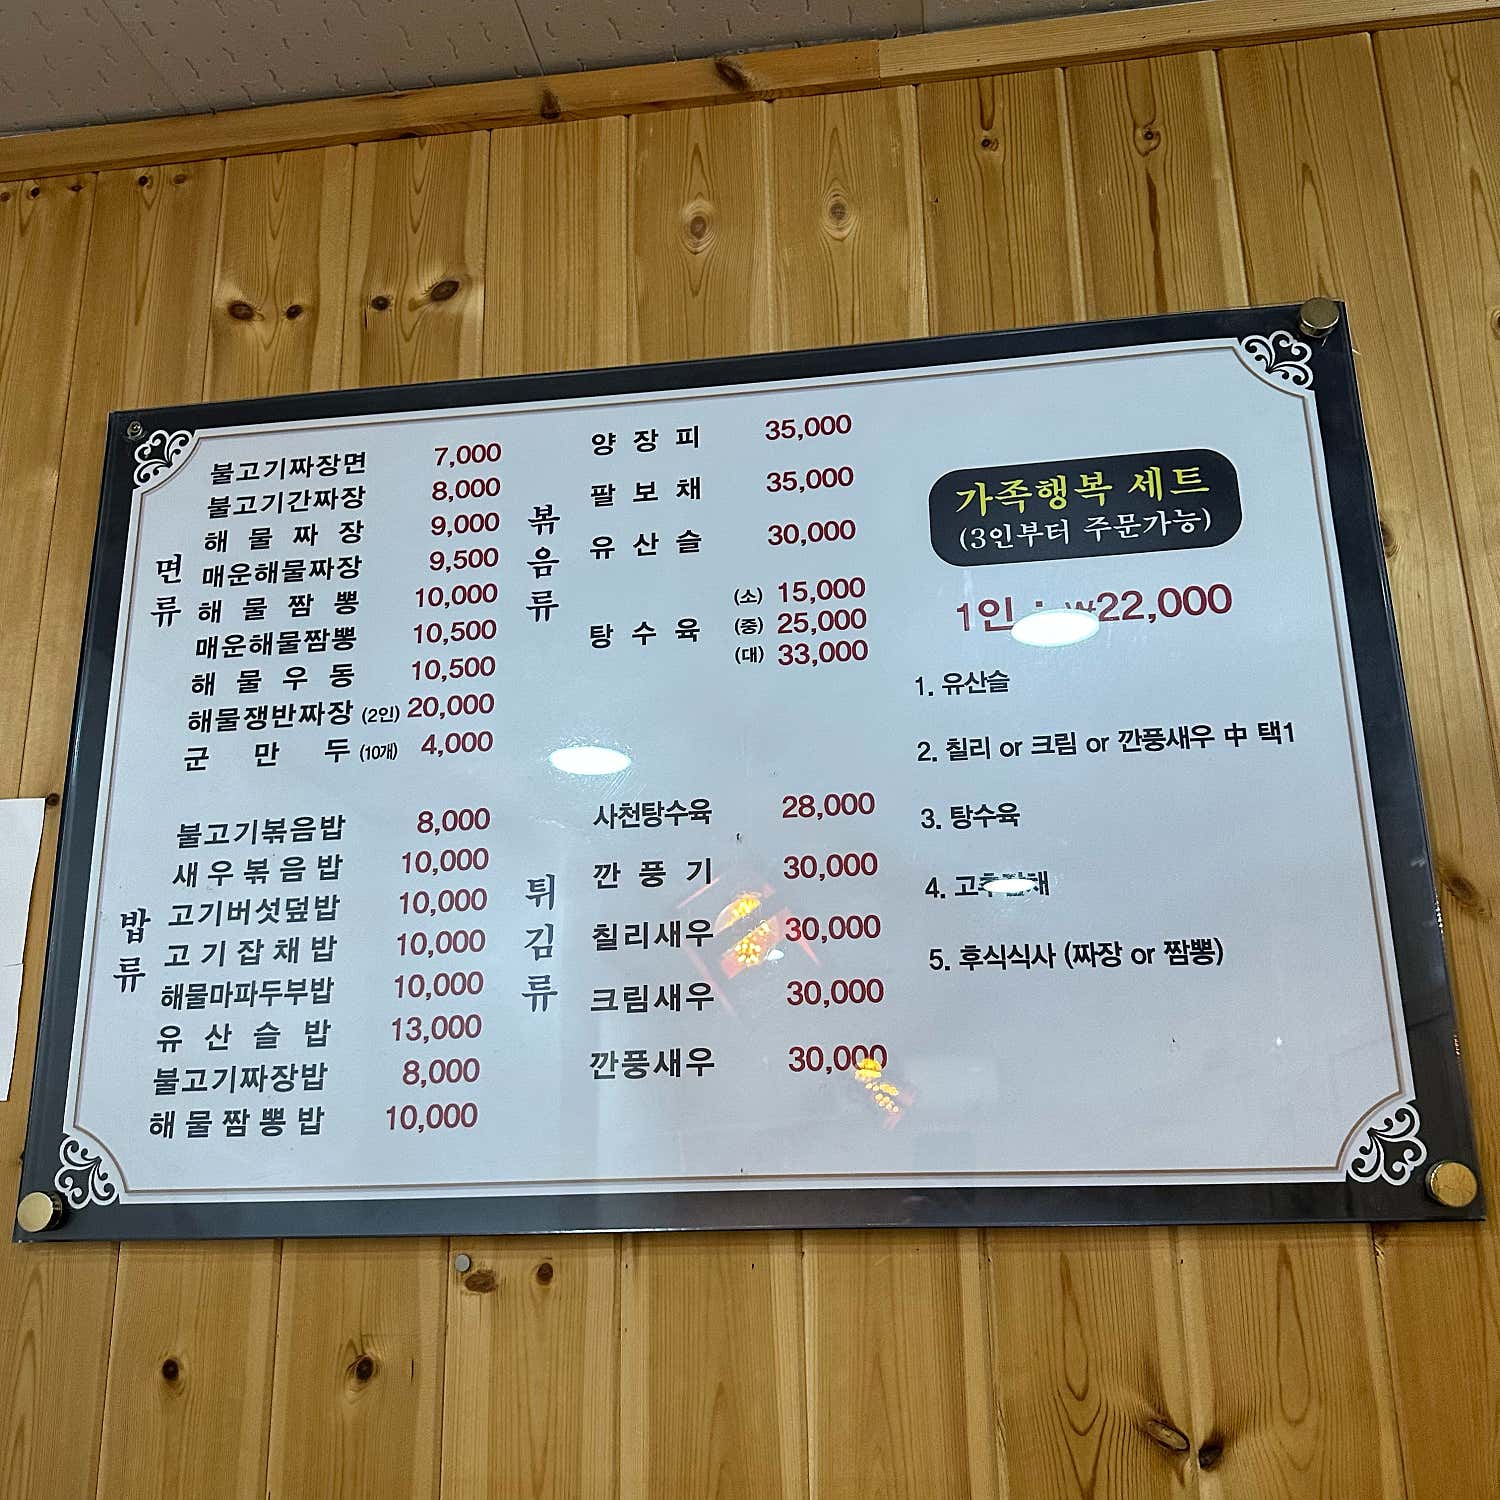 면류
불고기짜장면 7,000
불고기간짜장 8,000
해물짜장 9,000
매운해물짜장 9,500
해물짬뽕 10,000
매운해물짬뽕 10,500
해물우동 10,500
해물쟁반짜장 (2인) 20,000
군만두 (10개) 4,000
밥류
불고기볶음밥 8,000
새우볶음밥 10,000
고기버섯덮밥 10,000
고기잡채밥 10,000
해물마파두부밥 10,000
유산슬밥 13,000
불고기짜장밥 8,000
해물짬뽕밥 10,000
볶음류
양장피 35,000
팔보채 35,000
유산슬 30,000
탕수육 (소) 15,000
(중) 25,000
(대) 33,000
튀김류
사천탕수육 28,000
깐풍기 30,000
칠리새우 30,000
크림새우 30,000
깐풍새우 30,000
가족행복 세트
(3인부터 주문가능)
1인 : ₩22,000
1. 유산슬
2. 칠리 or 크림 or 깐풍새우 中 택1
3. 탕수육
4.
5. 후식식사 (짜장 or 짬뽕)